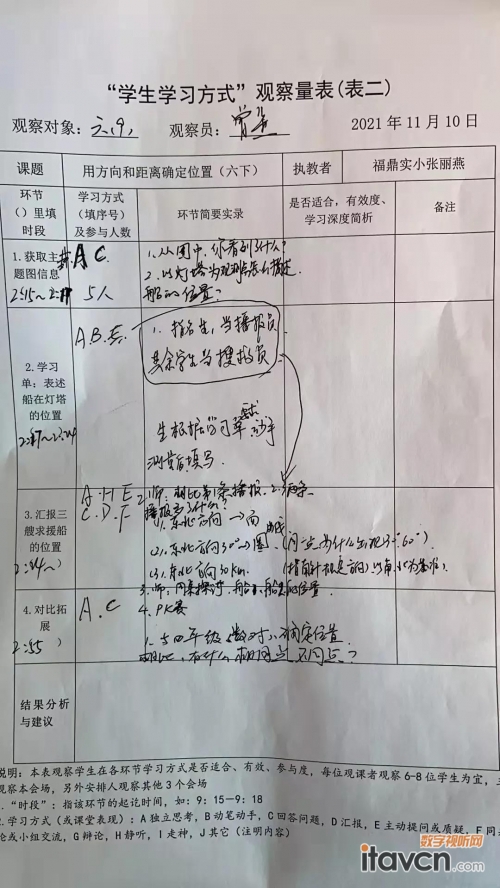 “学生学习方式”观察量表(表二)
观察对象：
观察员：
2021 年 11 月 10 日
课题
用方向和距离确定位置（六下）
执教者
福鼎实小张丽燕
环节
（）里填
时段
学习方式
（填序号）
及参与人数
环节简要实录
是否适合，有效度、
学习深度简析
备注
1.获取主
题图信息
A C.
5人
1.从图中,你看到了什么?
2.以灯塔为观测点怎么描述
船的位置?
2.学习
单：表述
船在灯塔
的位置
A.B.E.
1.指名生,当播报员
其余学生当搜救员
生根据学习单 动手
测量 填写.
3.汇报三
艘求援船
的位置
A.H E
C.D.F
播报
1.东北方向→面
(2).东北方向30°→
(3).东北方向30km.
4.PK赛
4.对比拓
展
2:55）
A.C
1.与四年级数对 确定位置
相比,有什么相同点 不同点?
结果分析
与建议
说明：本表观察学生在各环节学习方式是否适合、有效、参与度，每位观课者观察 6-8 位学生为宜，
观察本会场，另外安排人观察其他 3 个会场
.“时段”：指该环节的起讫时间，如：9：15—9：18
2.学习方式（或课堂表现）：A 独立思考，B 动笔动手，C 回答问题，D 汇报，E 主动提问或质疑，F 同
论或小组交流，G 辩论，H 静听，I 走神，J 其它（注明内容）
数字视听网
itavcn.com